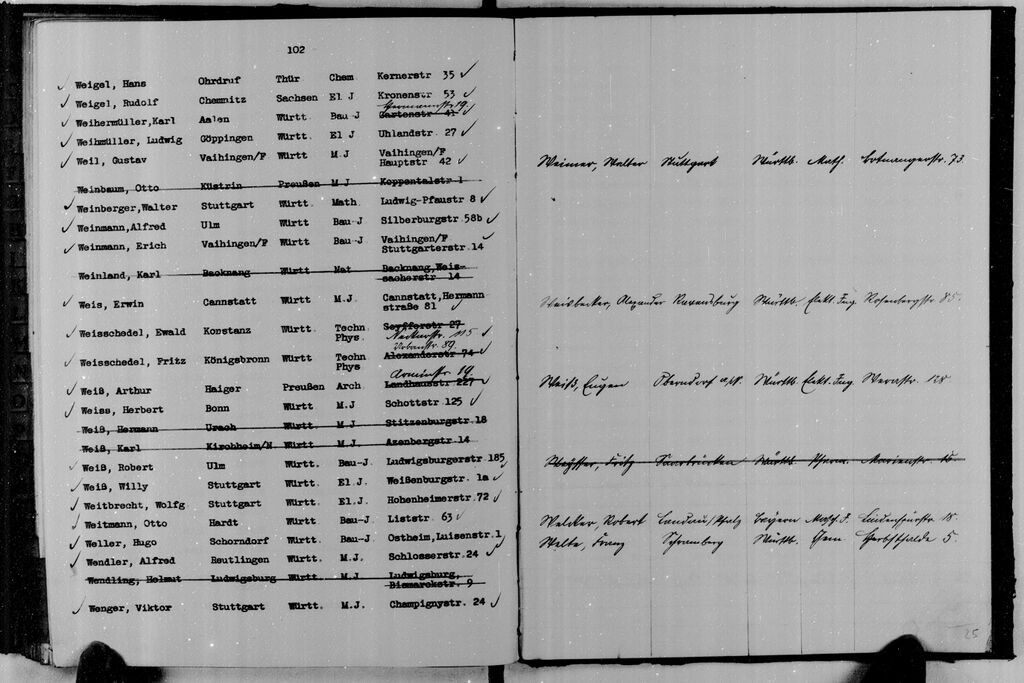 102
Weigel, Hans Ohrdruf Thür Chem Kernerstr 35 ✓
Weigel, Rudolf Chemnitz Sachsen El J Kronenstr 53 ✓
Hermannstr 19.
Weihermüller,Karl Aalen Württ Bau-J Gartenstr 41 ✓
Weihmüller, Ludwig Göppingen Württ. El J Uhlandstr. 27 ✓
Weil, Gustav Vaihingen/F Württ M.J Vaihingen/F
Hauptstr 42 ✓
Weinbaum, Otto Küstrin Preußen M J Koppentalstr 1
Weinberger,Walter Stuttgart Württ. Math. Ludwig-Pfaustr 8 ✓
Weinmann,Alfred Ulm Württ. Bau-J Silberburgstr 58b ✓
Weinmann, Erich Vaihingen/F Württ Bau-J Vaihingen/F ✓
Stuttgarterstr 14
Weinland, Karl Backnang Württ Nat Backnang,Weis-
sacherstr 14
Weis, Erwin Cannstatt Württ M.J. Cannstatt,Hermann
straße 81 ✓
Weisschedel, Ewald Konstanz Württ. Techn Seyfferstr 27
Phys. Neckarstr. 115 ✓
Urbanstr. 89.
Weisschedel, Fritz Königsbronn Württ Techn Alexanderstr 74 ✓
Phys
Arminstr 19.
Weiß, Arthur Haiger Preußen Arch Landhausstr 227 ✓
Weiss, Herbert Bonn Württ M.J Schottstr 125 ✓
Weiß, Hermann Urach Württ M.J Stitzenburgstr 18
Weiß, Karl Kirchheim/N Württ M.J Azenbergstr 14
Weiß, Robert Ulm Württ. Bau-J Ludwigsburgerstr 185
Weiß, Willy Stuttgart Württ. El.J. Weißenburgstr. 1a ✓
Weitbrecht, Wolfg Stuttgart Württ El.J. Hohenheimerstr.72 ✓
Weitmann, Otto Hardt Württ Bau-J Liststr 63 ✓
Weller, Hugo Schorndorf Württ. Bau-J. Ostheim,Luisenstr.1
Wendler, Alfred Reutlingen Württ M.J. Schlosserstr.24 ✓
Wendling, Helmut Ludwigsburg Württ. M.J Ludwigsburg,
Bismarckstr. 9
Wenger, Viktor Stuttgart Württ. M.J. Champignystr. 24 ✓
Weimer, Walter Stuttgart Württb. Math. Botnangerstr. 73
Weisbecker, Alexander Ravensburg Württb. Elekt. Ing Rosenbergstr 85.
Weiß, Eugen Oberndorf a/N. Württb. Elekt. Ing Werastr. 128
Fritz Saarbrücken Württb. Pharm. Marienstr.
Welcker, Robert Landau/Pfalz Bayern Masch. J. Lindenspürstr 18.
Welte, Franz Schramberg Württb. Chem Herbsthalde 5.
25